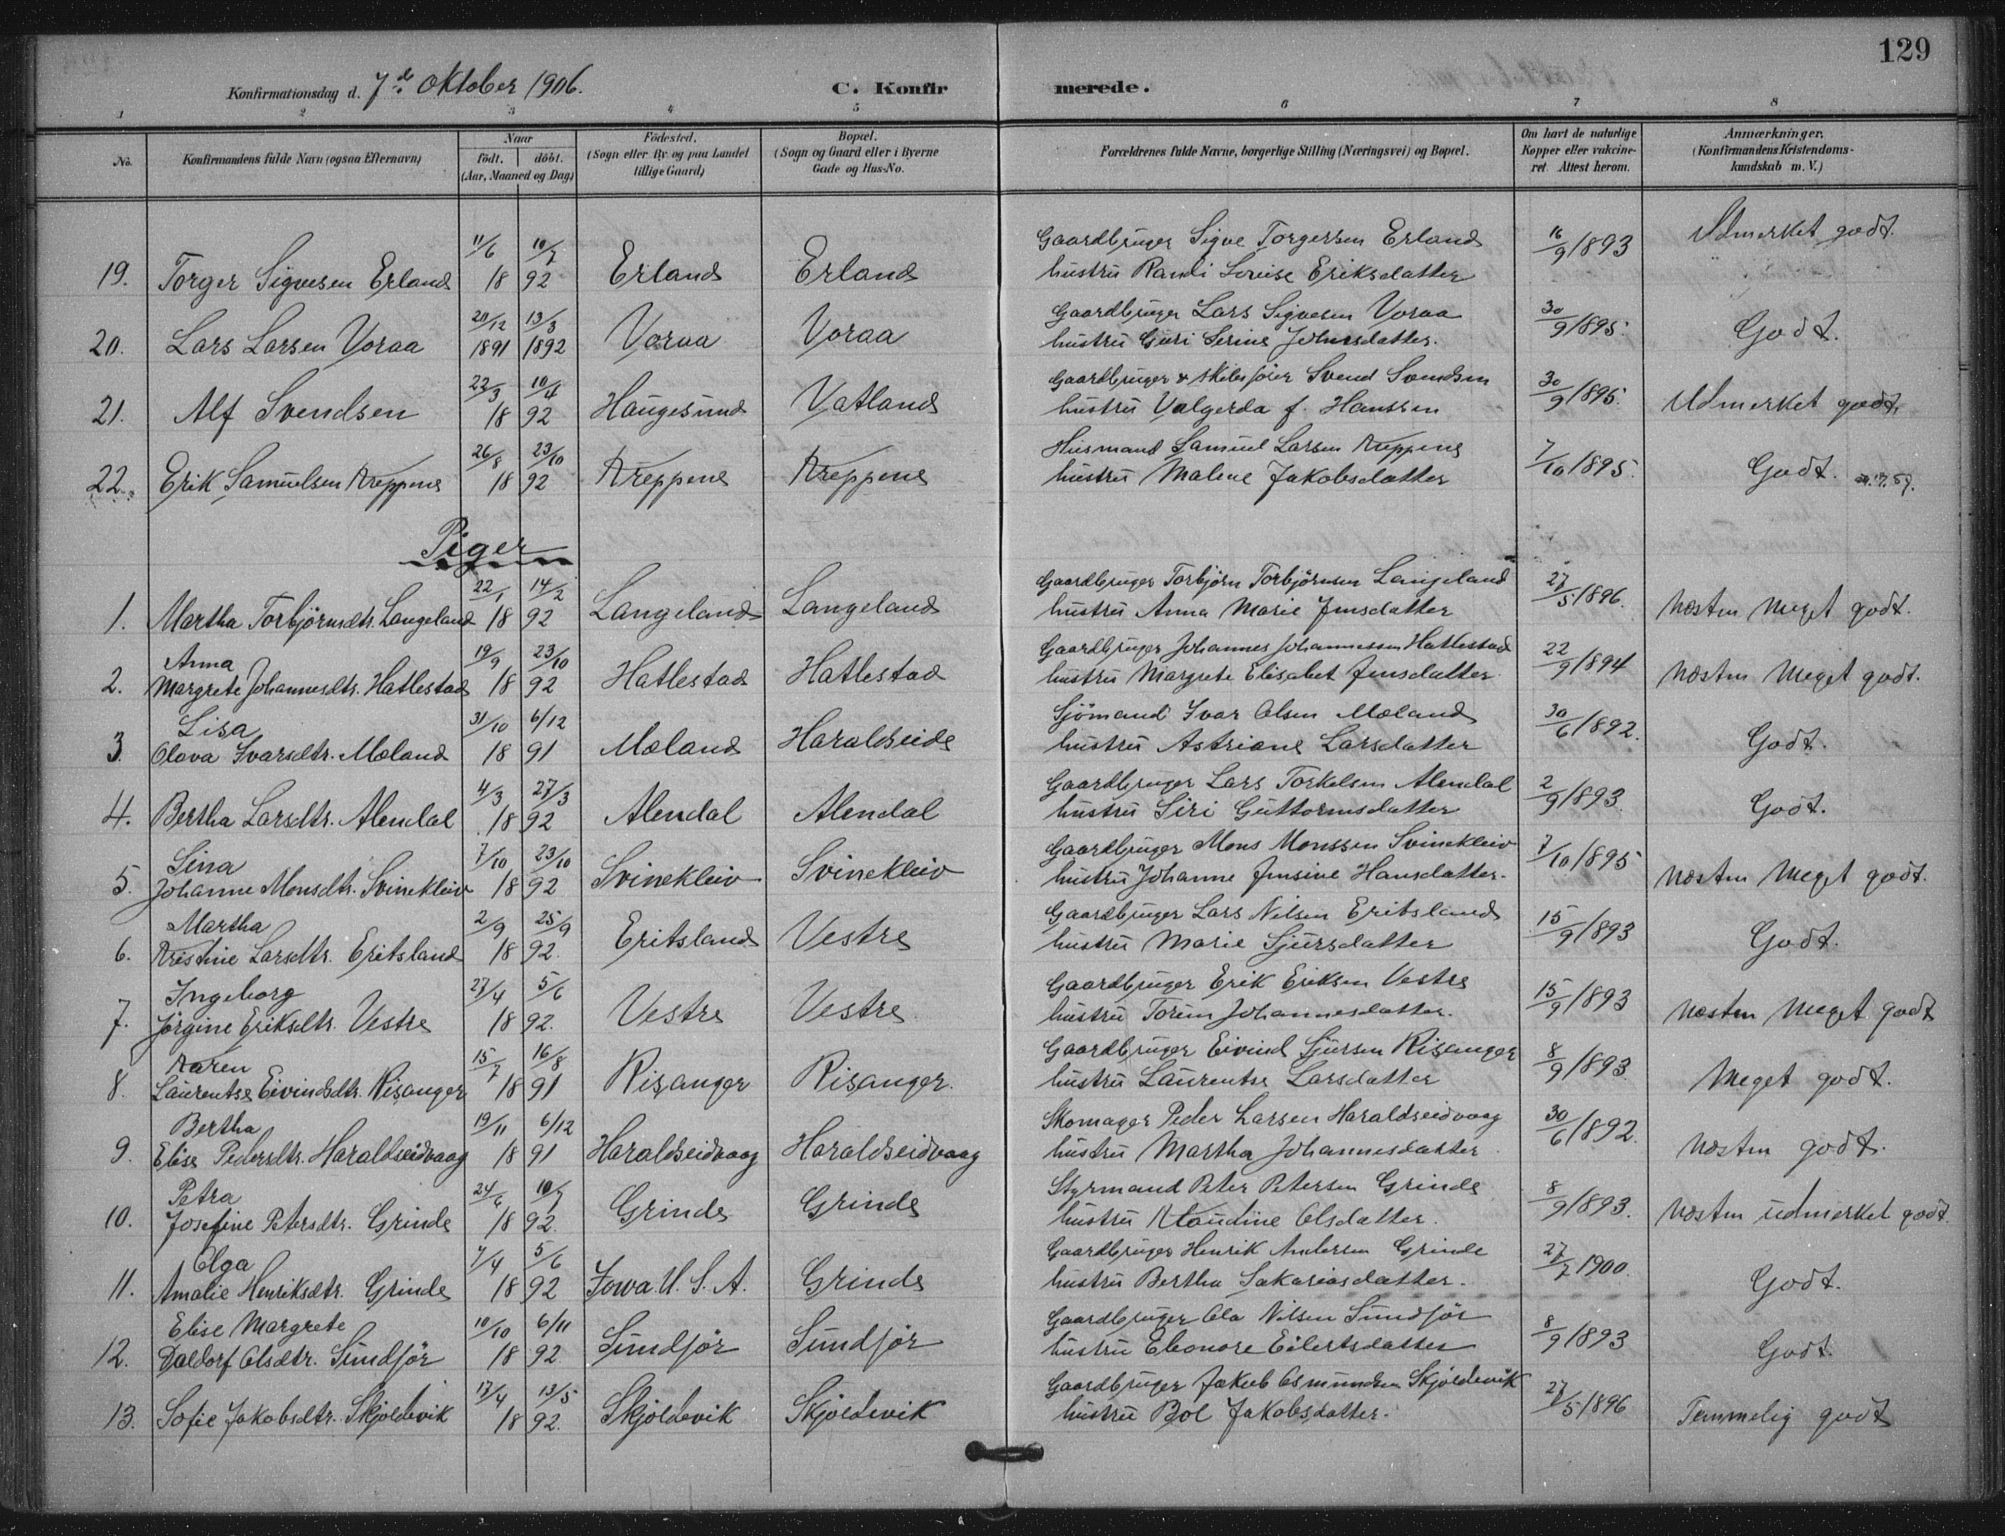 129
Konfirmationsdag d. 7de Oktober 1906. C. Konfirmerede.
1 2 3 4 5 6 7 8
No. Konfirmandens fulde Navn (ogsaa Efternavn) Naar født. døbt. (Aar, Maaned og Dag) Fødested. (Sogn eller By og paa Landet tillige Gaard) Bopæl. (Sogn og Gaard eller i Byerne Gade og Hus-No. Forældrenes fulde Navne, borgerlige Stilling (Næringsvei) og Bopæl. Om havt de naturlige Kopper eller vakcineret. Attest herom. Anmærkninger. (Konfirmandens Kristendomskundskab m. V.)
11/6 10/7 Gaardbruger Sigve Torgersen Erland 16/9 1893 Udmerket godt.
19. Torger Sigvesen Erland 18 92 Erland Erland hustru Randi Lovise Eriksdatter
20/12 13/3 Gaardbruger Lars Sigvesen Voraa 30/9 1895
20. Lars Larsen Voraa 1891 1892 Voraa Voraa hustru Guri Serine Johnsdatter. Godt.
22/3 10/4 Gaardbruger & skibsfører Svend Svendsen 30/9 1895
21. Alf Svendsen 18 92 Haugesund Vatland hustru Valgerda f. Hanssen Udmerket godt.
26/8 23/10 Husmand Samuel Larsen Kreppene 7/10 1895.
22. Erik Samuelsen Kreppene 18 92 Kreppene Kreppene hustru Malene Jakobsdatter Godt.
Piger
22/1 14/2 Gaardbruger Torbjørn Torbjørnsen Langeland 27/5 1896.
1. Martha Torbjørnsdtr. Langeland 18 92 Langeland Langeland hustru Anna Marie Jensdatter Næsten Meget godt.
Anna 19/9 23/10 Gaardbruger Johannes Johannessen Hatlestad 22/9 1894
2. Margrete Johannesdtr. Hatlestad 18 92 Hatlestad Hatlestad hustru Margrete Elisabet Jensdatter. Næsten Meget godt.
Lisa 31/10 6/12 Sjömand Ivar Olsen Mæland 30/6 1892.
3. Olava Ivarsdtr. Mæland 18 91 Mæland Haraldseide hustru Astriane Larsdatter Godt.
4/3 27/3 Gaardbruger Lars Torkelsen Alendal 2/9 1893.
4. Bertha Larsdtr. Alendal 18 92 Alendal Alendal hustru Siri Guttormsdatter Godt.
Sina 7/10 23/10 Gaardbruger Mons Monssen Svinekleiv 7/10 1895
5. Johanne Monsdtr. Svinekleiv 18 92 Svinekleiv Svinekleiv hustru Johanne Jensine Hansdatter. Næsten Meget godt.
Martha 2/9 25/9 Gaardbruger Lars Nilsen Eritsland 15/9 1893
6. Kristine Larsdtr. Eritsland 18 92. Eritsland Vestre hustru Marie Sjursdatter Godt.
Ingeborg 27/4 5/6 Gaardbruger Erik Eriksen Vestre 15/9 1893
7. Jørgine Eriksdtr. Vestre 18 92. Vestre Vestre hustru Torine Johannesdatter. Næsten Meget godt
Karen 15/7 16/8 Gaardbruger Eivind Sjursen Risanger 8/9 1893.
8. Laurentse Eivindsdtr. Risanger 18 91 Risanger Risanger. hustru Laurentse Larsdatter Meget godt.
Bertha 19/11 6/12 Skomager Peder Larsen Haraldseidvaag 30/6 1892.
9. Elise Pedersdtr. Haraldseidvaag 18 91 Haraldseidvaag Haraldseidvaag hustru Martha Johannesdatter Næsten godt.
Petra 24/6 10/7 Styrmand Peter Petersen Grinde 8/9 1893.
10. Josefine Petersdtr. Grinde 18 92. Grinde Grinde hustru Klaudine Olsdatter. Næsten udmerket godt.
Olga 7/4 5/6 Gaardbruger Henrik Andersen Grinde 27/7 1900.
11. Amalie Henriksdtr. Grinde 18 92 Iowa. U. S. A. Grinde hustru Bertha Sakariasdatter. Godt.
Elise Margrete 10/10 6/11 Gaardbruger Ola Nilsen Sundfør 8/9 1893
12. Daldorf Olsdtr. Sundfør 18 92. Sundfør Sundfør hustru Eleonore Eilertsdatter Godt.
17/4 13/5 Gaardbruger Jakob Osmundsen Skjoldevik 27/5 1896
13. Sofie Jakobsdtr. Skjoldevik 18 92. Skjoldevik Skjoldevik hustru Bol Jakobsdatter. Temmelig godt